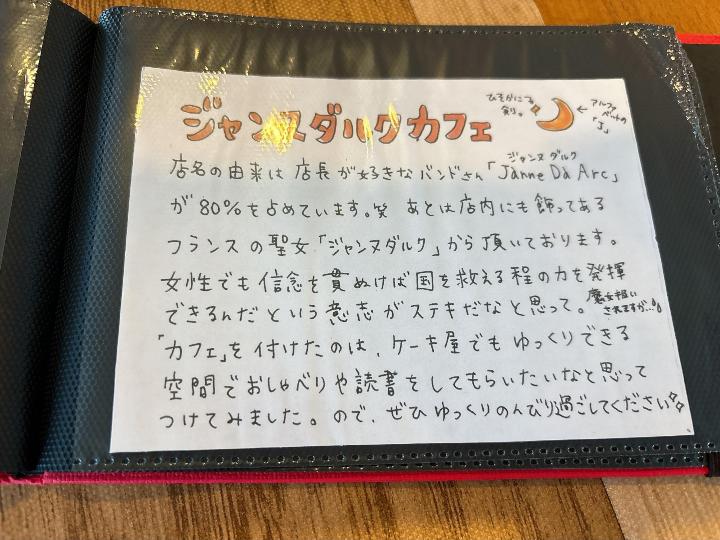 ジャンヌダルクカフェ
ひそかにする
剣。
← アルファ
ベットの
「J」
店名の由来は 店長が好きなバンドさん「Janne Da Arc」
ジャンヌ ダルク
が80%を占めています。笑 あとは店内にも飾ってある
フランスの聖女「ジャンヌダルク」から頂いております。
女性でも信念を貫ぬけば国を救える程の力を発揮
できるんだという意志がステキだなと思って。
魔女狙い
されますが…
「カフェ」を付けたのは、ケーキ屋でもゆっくりできる
空間でおしゃべりや読書をしてもらいたいなと思って
つけてみました。ので、ぜひゆっくりのんびり過ごしてください